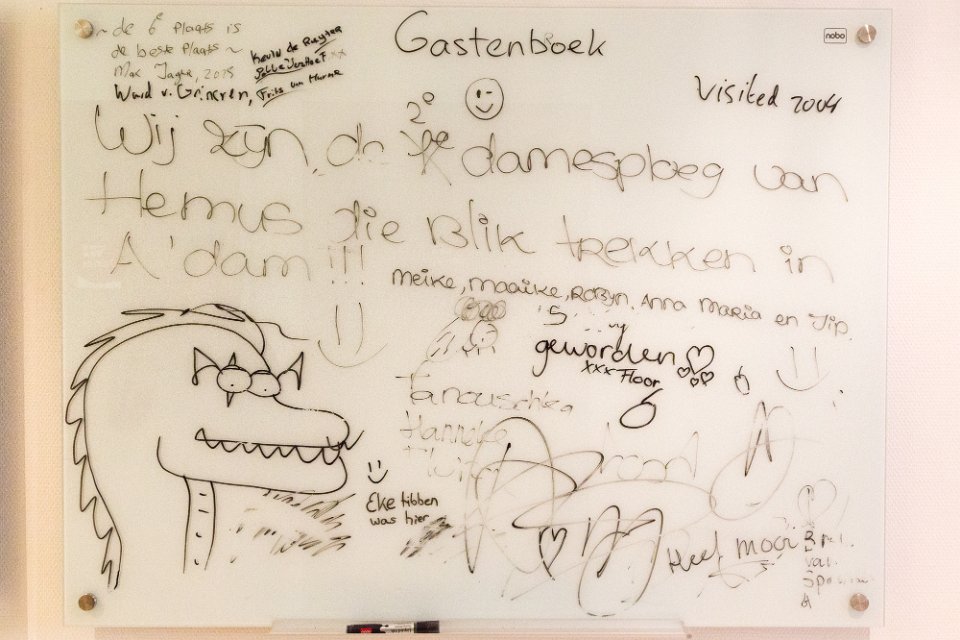 ~ de 6e plaats is
de beste plaats ~
Max Jager, 2015
Kevin de Ruyter
xx
Ward v. Ginkren, Frits van
Gastenboek
nobo
Visited 2004
2e
Wij zijn de damesploeg van
Hemus die Blik trekken in
A'dam!!!
Meike, maaike, Robyn, Anna Maria en Jip
5
geworden
xxx Floor
6
6
Tanouschka
Hanneke
Eke tibben
was hier
Heel mooi